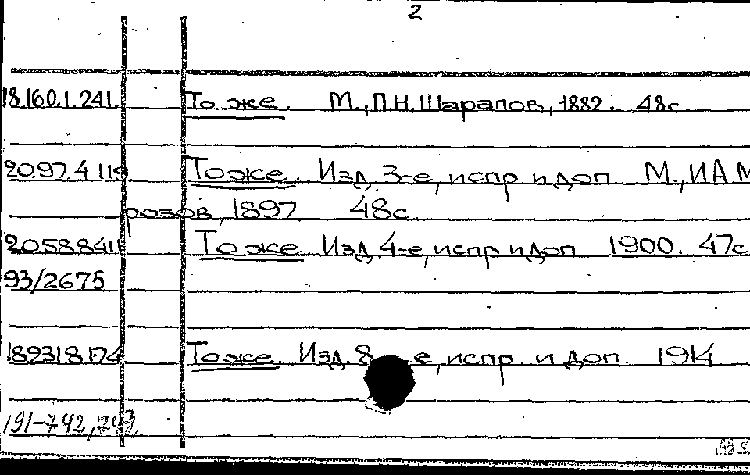 2
18.160.1.241 То же. М., П.Н. Шарапов, 1882. 48с.
20.97.4.119 То же. Изд. 3-е, испр. и доп. М., И.А. М
розов, 1897. 48с.
20.58.8.411 То же. Изд. 4-е, испр. и доп. 1900. 47с
93/2675
18.93.18.174 То же. Изд. 8 е, испр. и доп. 1914
191-742, 243